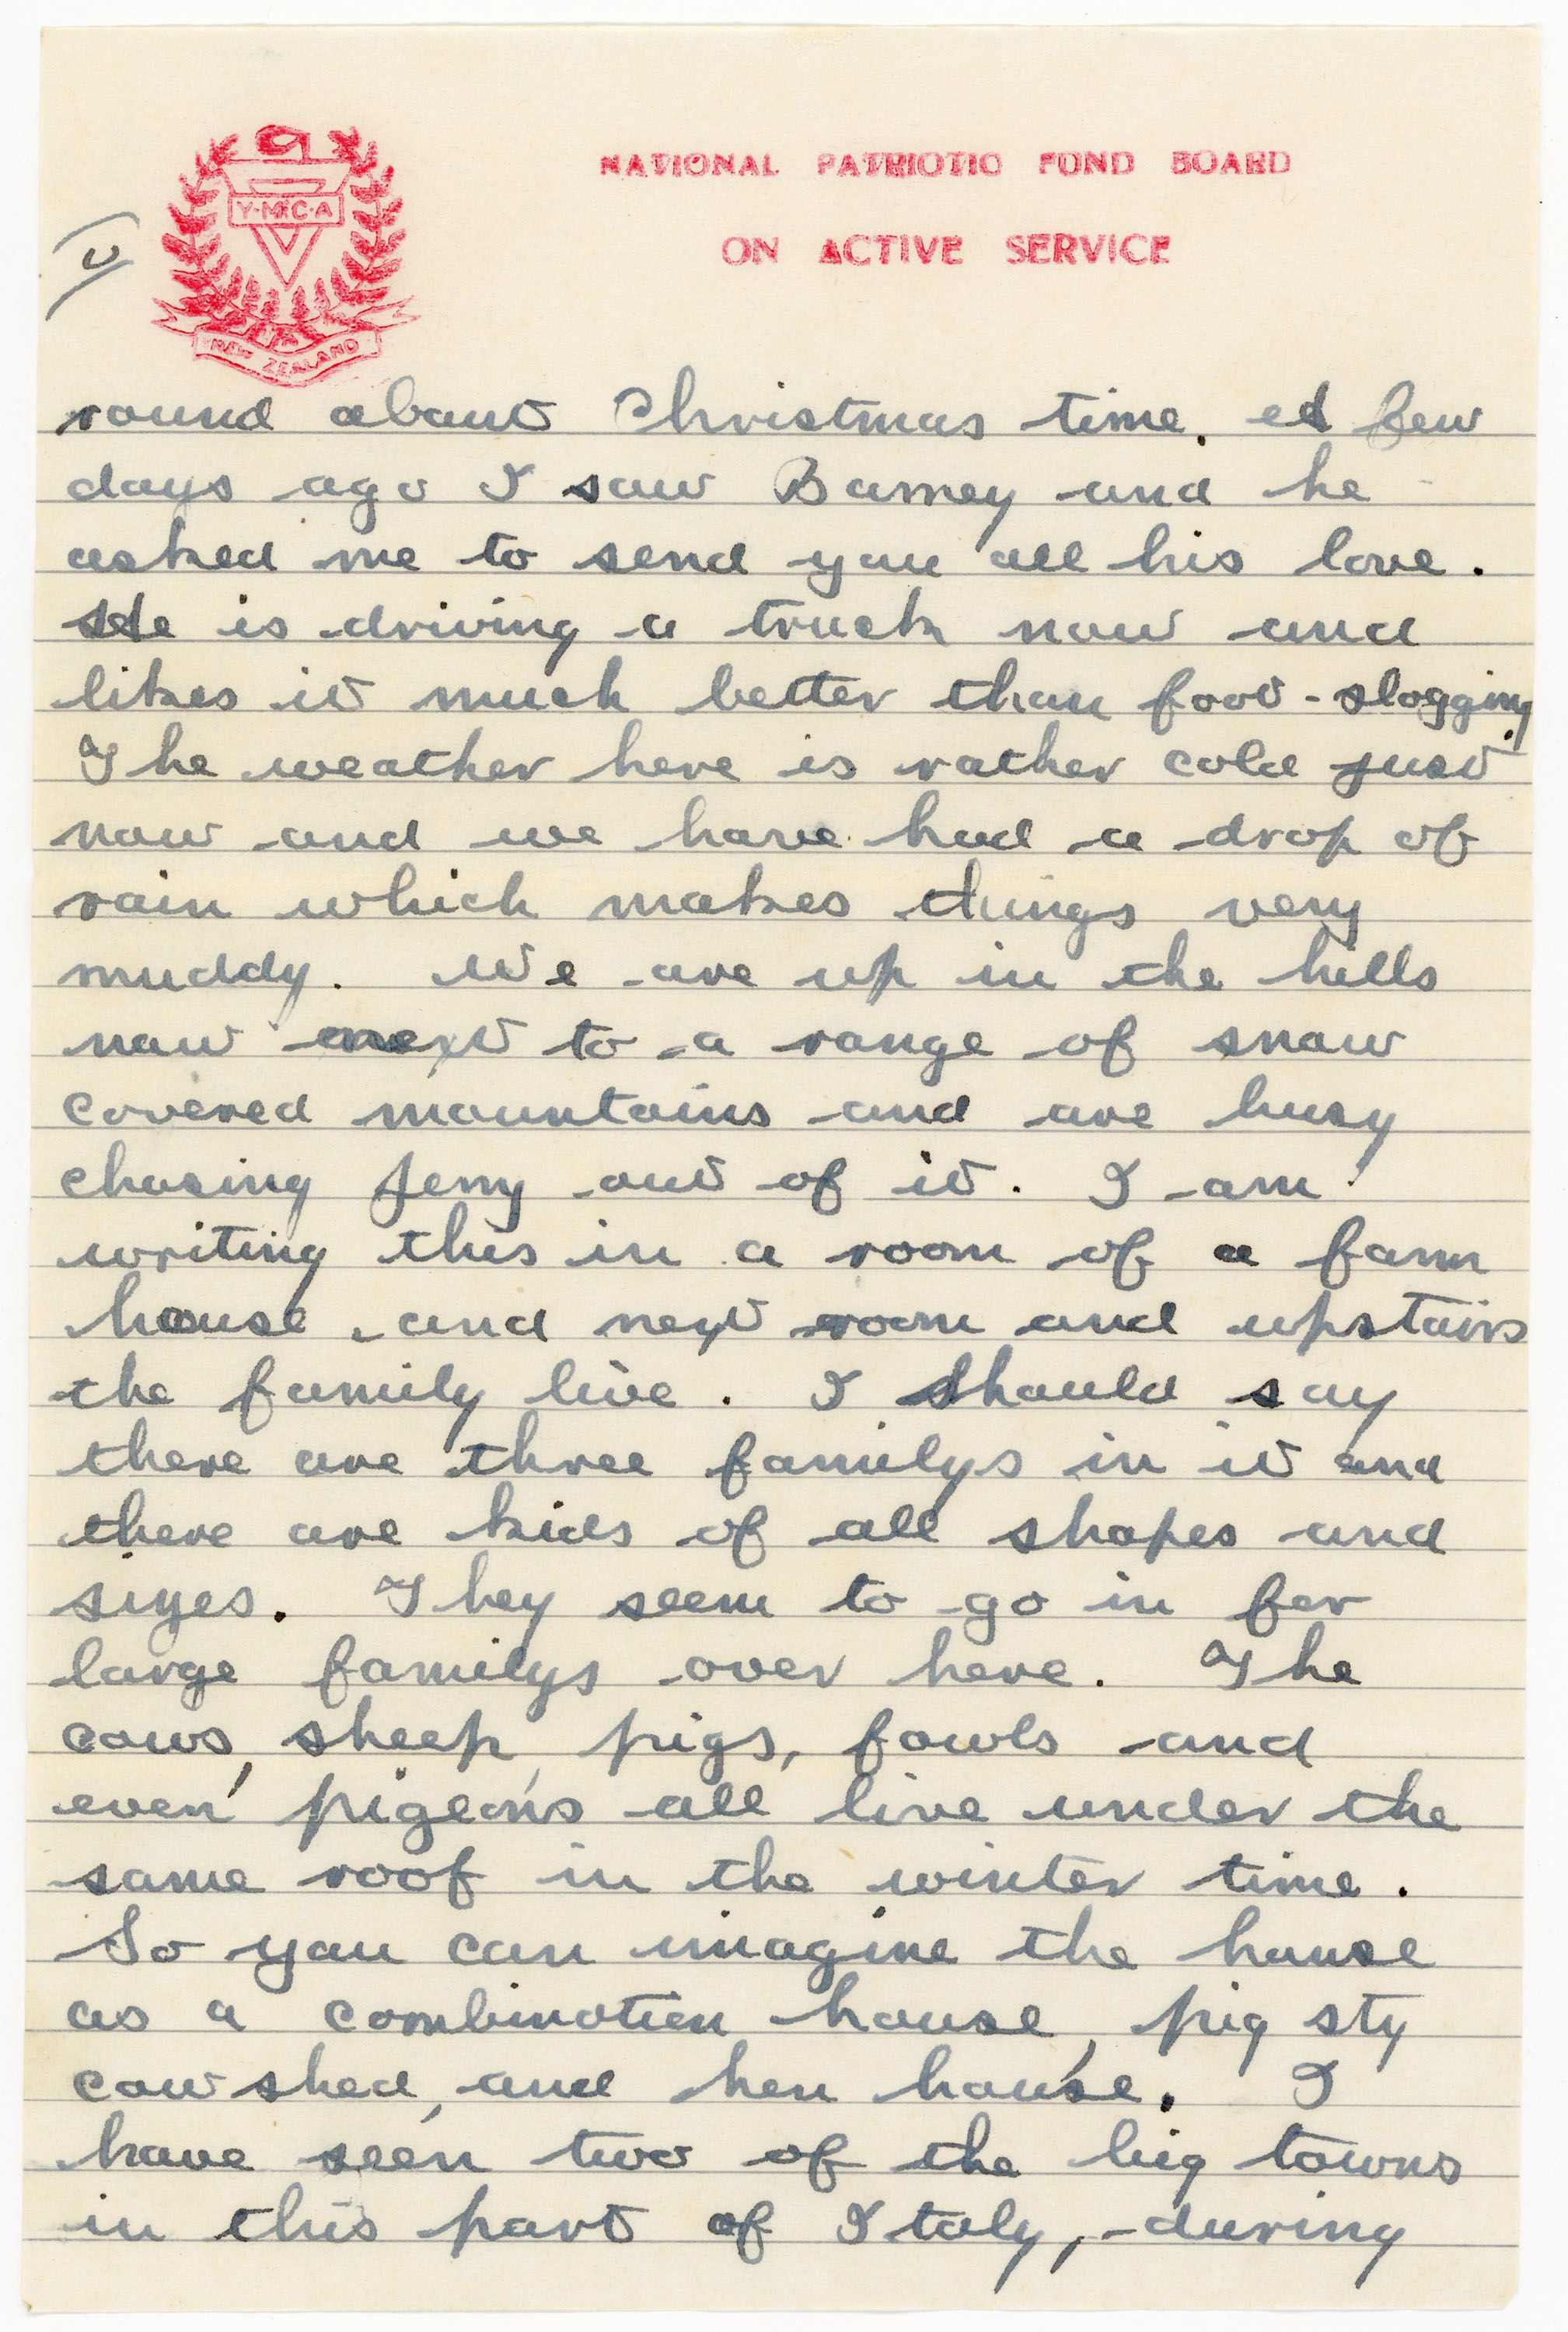 NATIONAL PATRIOTIC FUND BOARD
ON ACTIVE SERVICE
Y·M·C·A
NEW ZEALAND
round about Christmas time. A few
days ago I saw Barney and he
asked me to send you all his love.
He is driving a truck now and
likes it much better than foot-slogging.
The weather here is rather cold just
now and we have had a drop of
rain which makes things very
muddy. We are up in the hills
now next to a range of snow
covered mountains and are busy
chasing Jerry out of it. I am
writing this in a room of a farm
house and next room and upstairs
the family live. I should say
there are three familys in it and
there are kids of all shapes and
sizes. They seem to go in for
large familys over here. The
cows, sheep, pigs, fowls and
even pigeons all live under the
same roof in the winter time.
So you can imagine the house
as a combination house, pig sty
cow shed, and hen house. I
have seen two of the big towns
in this part of Italy, during